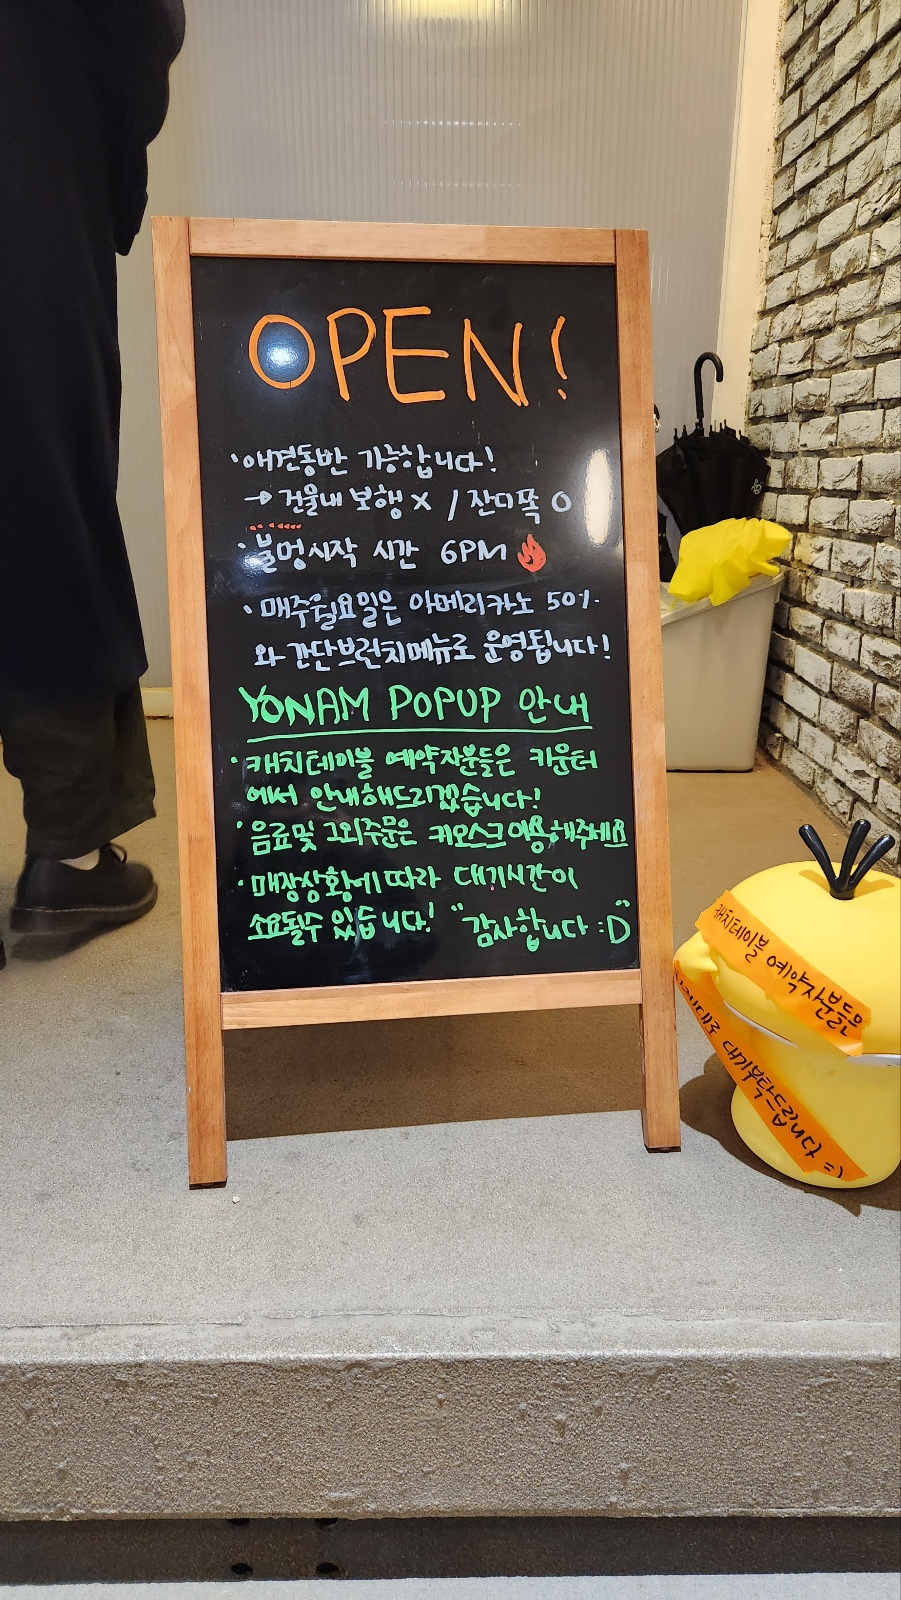 OPEN!
· 애견동반 가능합니다!
→ 건물내 보행 X / 잔디쪽 O
· 불멍시작 시간 6PM
· 매주월요일은 아메리카노 50%
와 간단브런치메뉴로 운영됩니다!
YONAM POPUP 안내
· 캐치테이블 예약자분들은 카운터
에서 안내해드리겠습니다!
· 음료 및 그외주문은 키오스크 이용해주세요
· 매장상황에 따라 대기시간이
소요될수 있습니다! "감사합니다 :D"
캐치테이블 예약자분들은
대로 대기부탁드립니다 =)